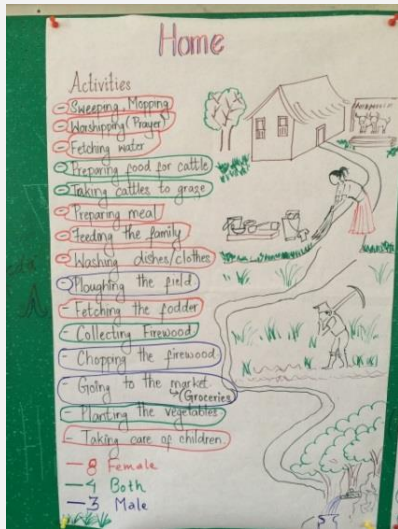 Home
Activities
- Sweeping, Mopping
- Worshipping (Prayer)
- Fetching water
- Preparing food for cattle
- Taking cattles to graze
- Preparing meal
- Feeding the family
- Washing dishes/clothes
- Ploughing the field
- Fetching the fodder
- Collecting Firewood
- Chopping the firewood
- Going to the market
↳ Groceries
- Planting the vegetables
- Taking care of children
- 8 Female
- 4 Both
- 3 Male